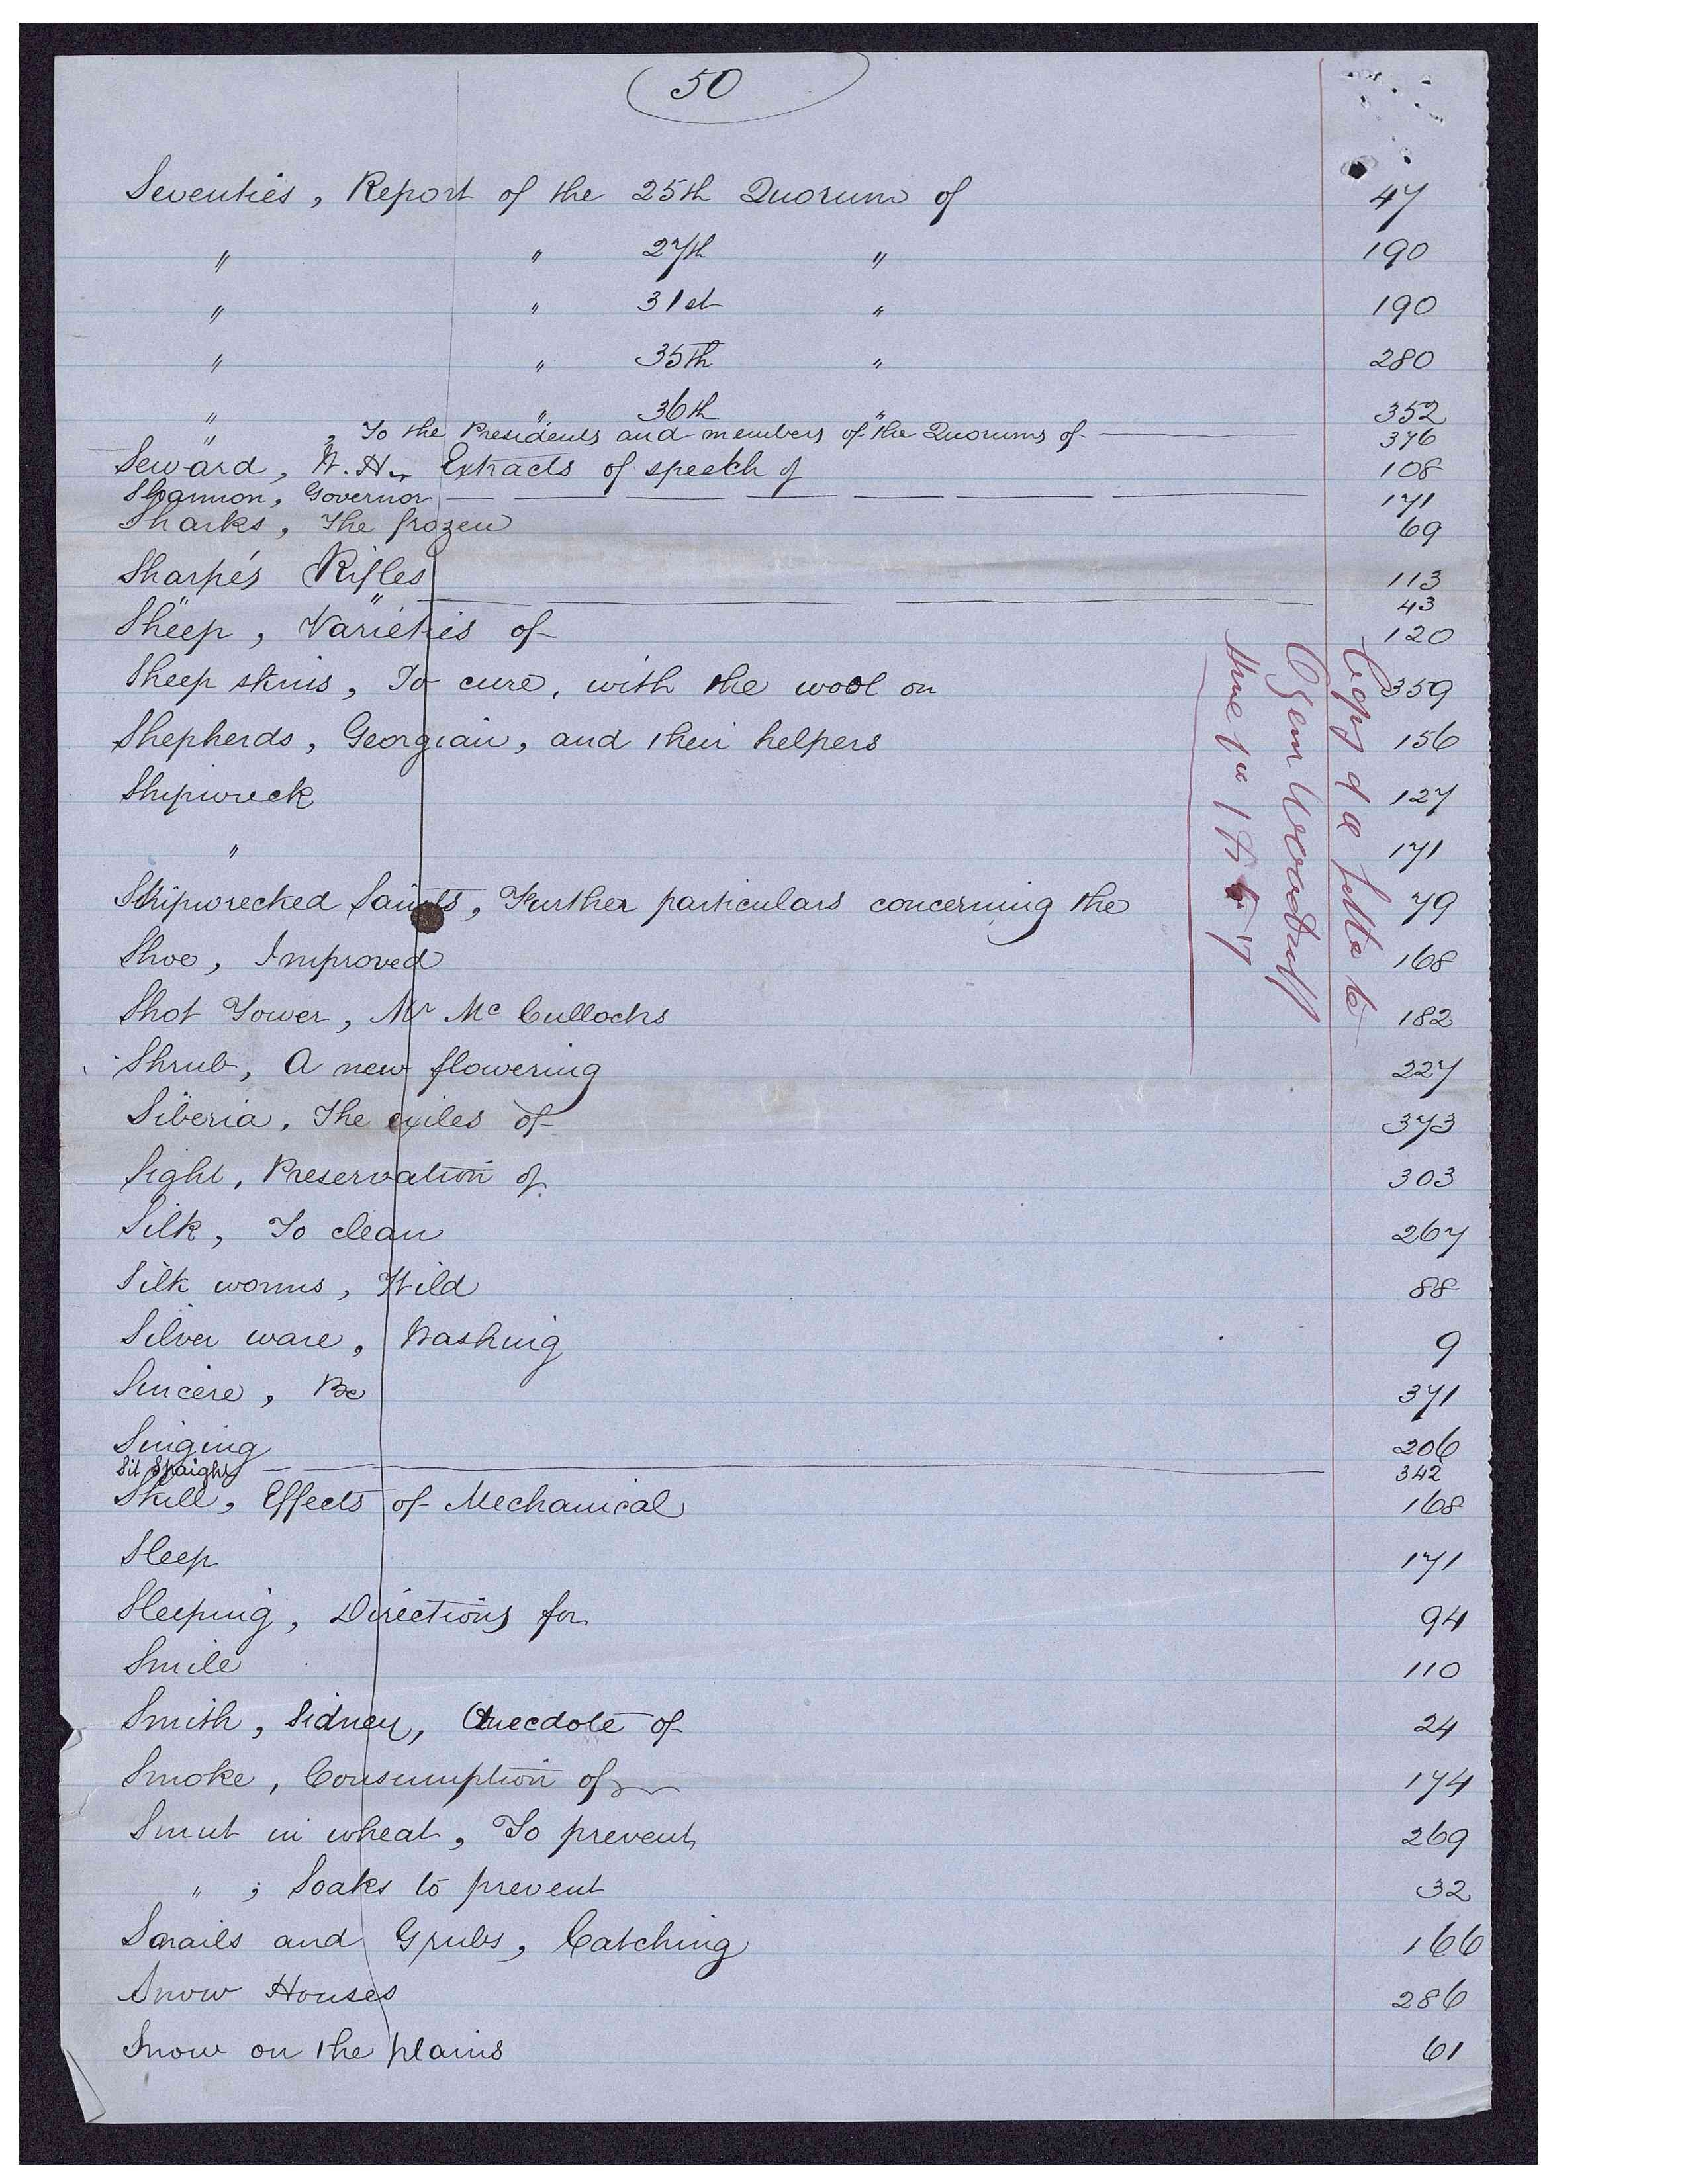 50
Seventies, Report of the 25th Quorum of 47
" " 27th " 190
" " 31st " 190
" " 35th " 280
" " 36th " 352
" , To the Presidents and members of the Quorums of 376
Seward, W. H., Extracts of speech of 108
Shannon, Governor 171
Sharks, The frozen 69
Sharpe's Rifles 113
" " 43
Sheep, Varieties of 120
Sheep skins, To cure, with the wool on 359
Shepherds, Georgian, and their helpers 156
Shipwreck 127
" 171
Shipwrecked Saints, Further particulars concerning the 79
Shoe, Improved 168
Shot Tower, Mr McCullochs 182
Shrub, A new flowering 227
Siberia, The exiles of 373
Sight, Preservation of 303
Silk, To clean 267
Silk worms, Wild 88
Silver ware, Washing 9
Sincere, Be 371
Singing 206
Sit Straight 342
Skill, Effects of Mechanical 168
Sleep 171
Sleeping, Directions for 94
Smile 110
Smith, Sidney, Anecdote of 24
Smoke, Consumption of 174
Smut in wheat, To prevent 269
" ; Soaks to prevent 32
Snails and Grubs, Catching 166
Snow Houses 286
Snow on the plains 61
Copy of a letter to
Woodruff